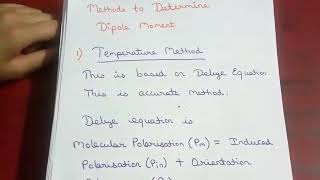 Methods to Determine
Dipole Moment
1) Temperature Method
This is based on Debye Equation.
This is accurate method.
Debye equation is
Molecular Polarisation (Pm) = Induced
Polarisation (Pin) + Orientation